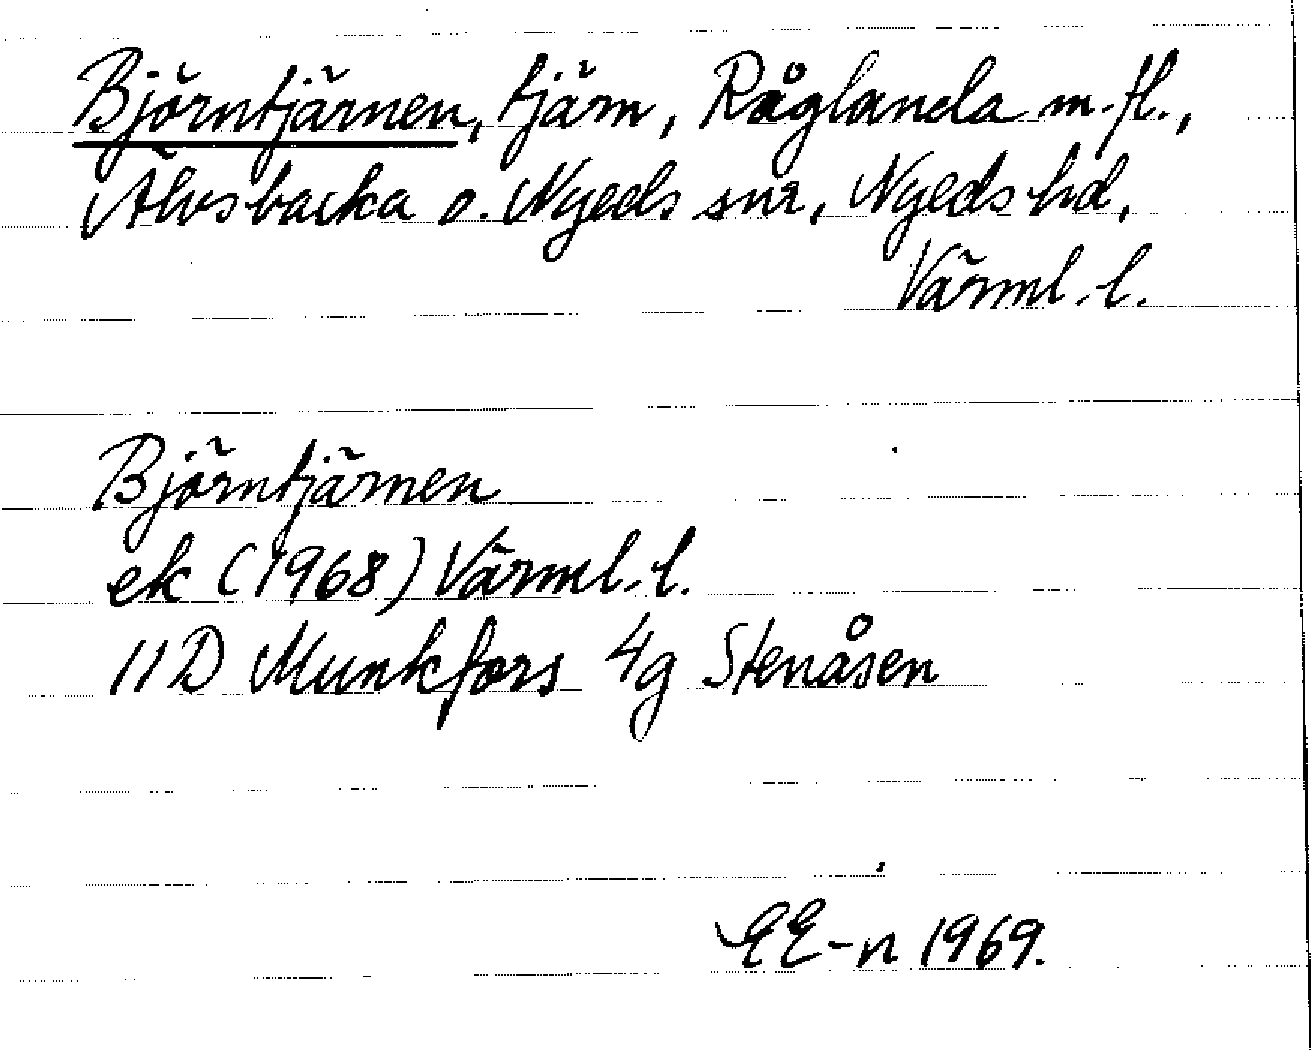 Björntjärnen, tjärn, Råglanda m.fl.,
Älvsbacka o. Nyeds snr, Nyeds hd,
Värml. l.
Björntjärnen
ek (1968) Värml. l.
11D Munkfors 4g Stenåsen
EE-n 1969.